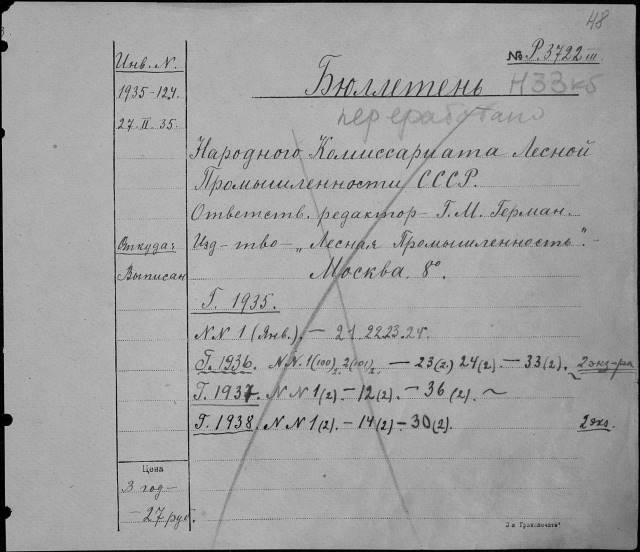 48
№ Р.3722 III
Инв. N.
Бюллетень НЗЗкб
1935-124
переработано
27.II.35.
Народного Комиссариата Лесной
Промышленности СССР.
Ответств. редактор - Г. М. Герман.
Откуда:
Изд-тво - „Лесная Промышленность". -
Выписан
Москва. 8°.
Г. 1935.
NN 1 (Янв.). - 21. 22. 23. 24.
Г. 1936. NN. 1(100), 2(101) - 23(2.) 24(2). - 33(2). 2 экз-ра
Г. 1937. NN 1(2). - 12(2). - 36(2). ~
Г. 1938. NN 1(2). - 14(2) - 30(2). 2 экз.
Цена
3 год-
-27 руб.